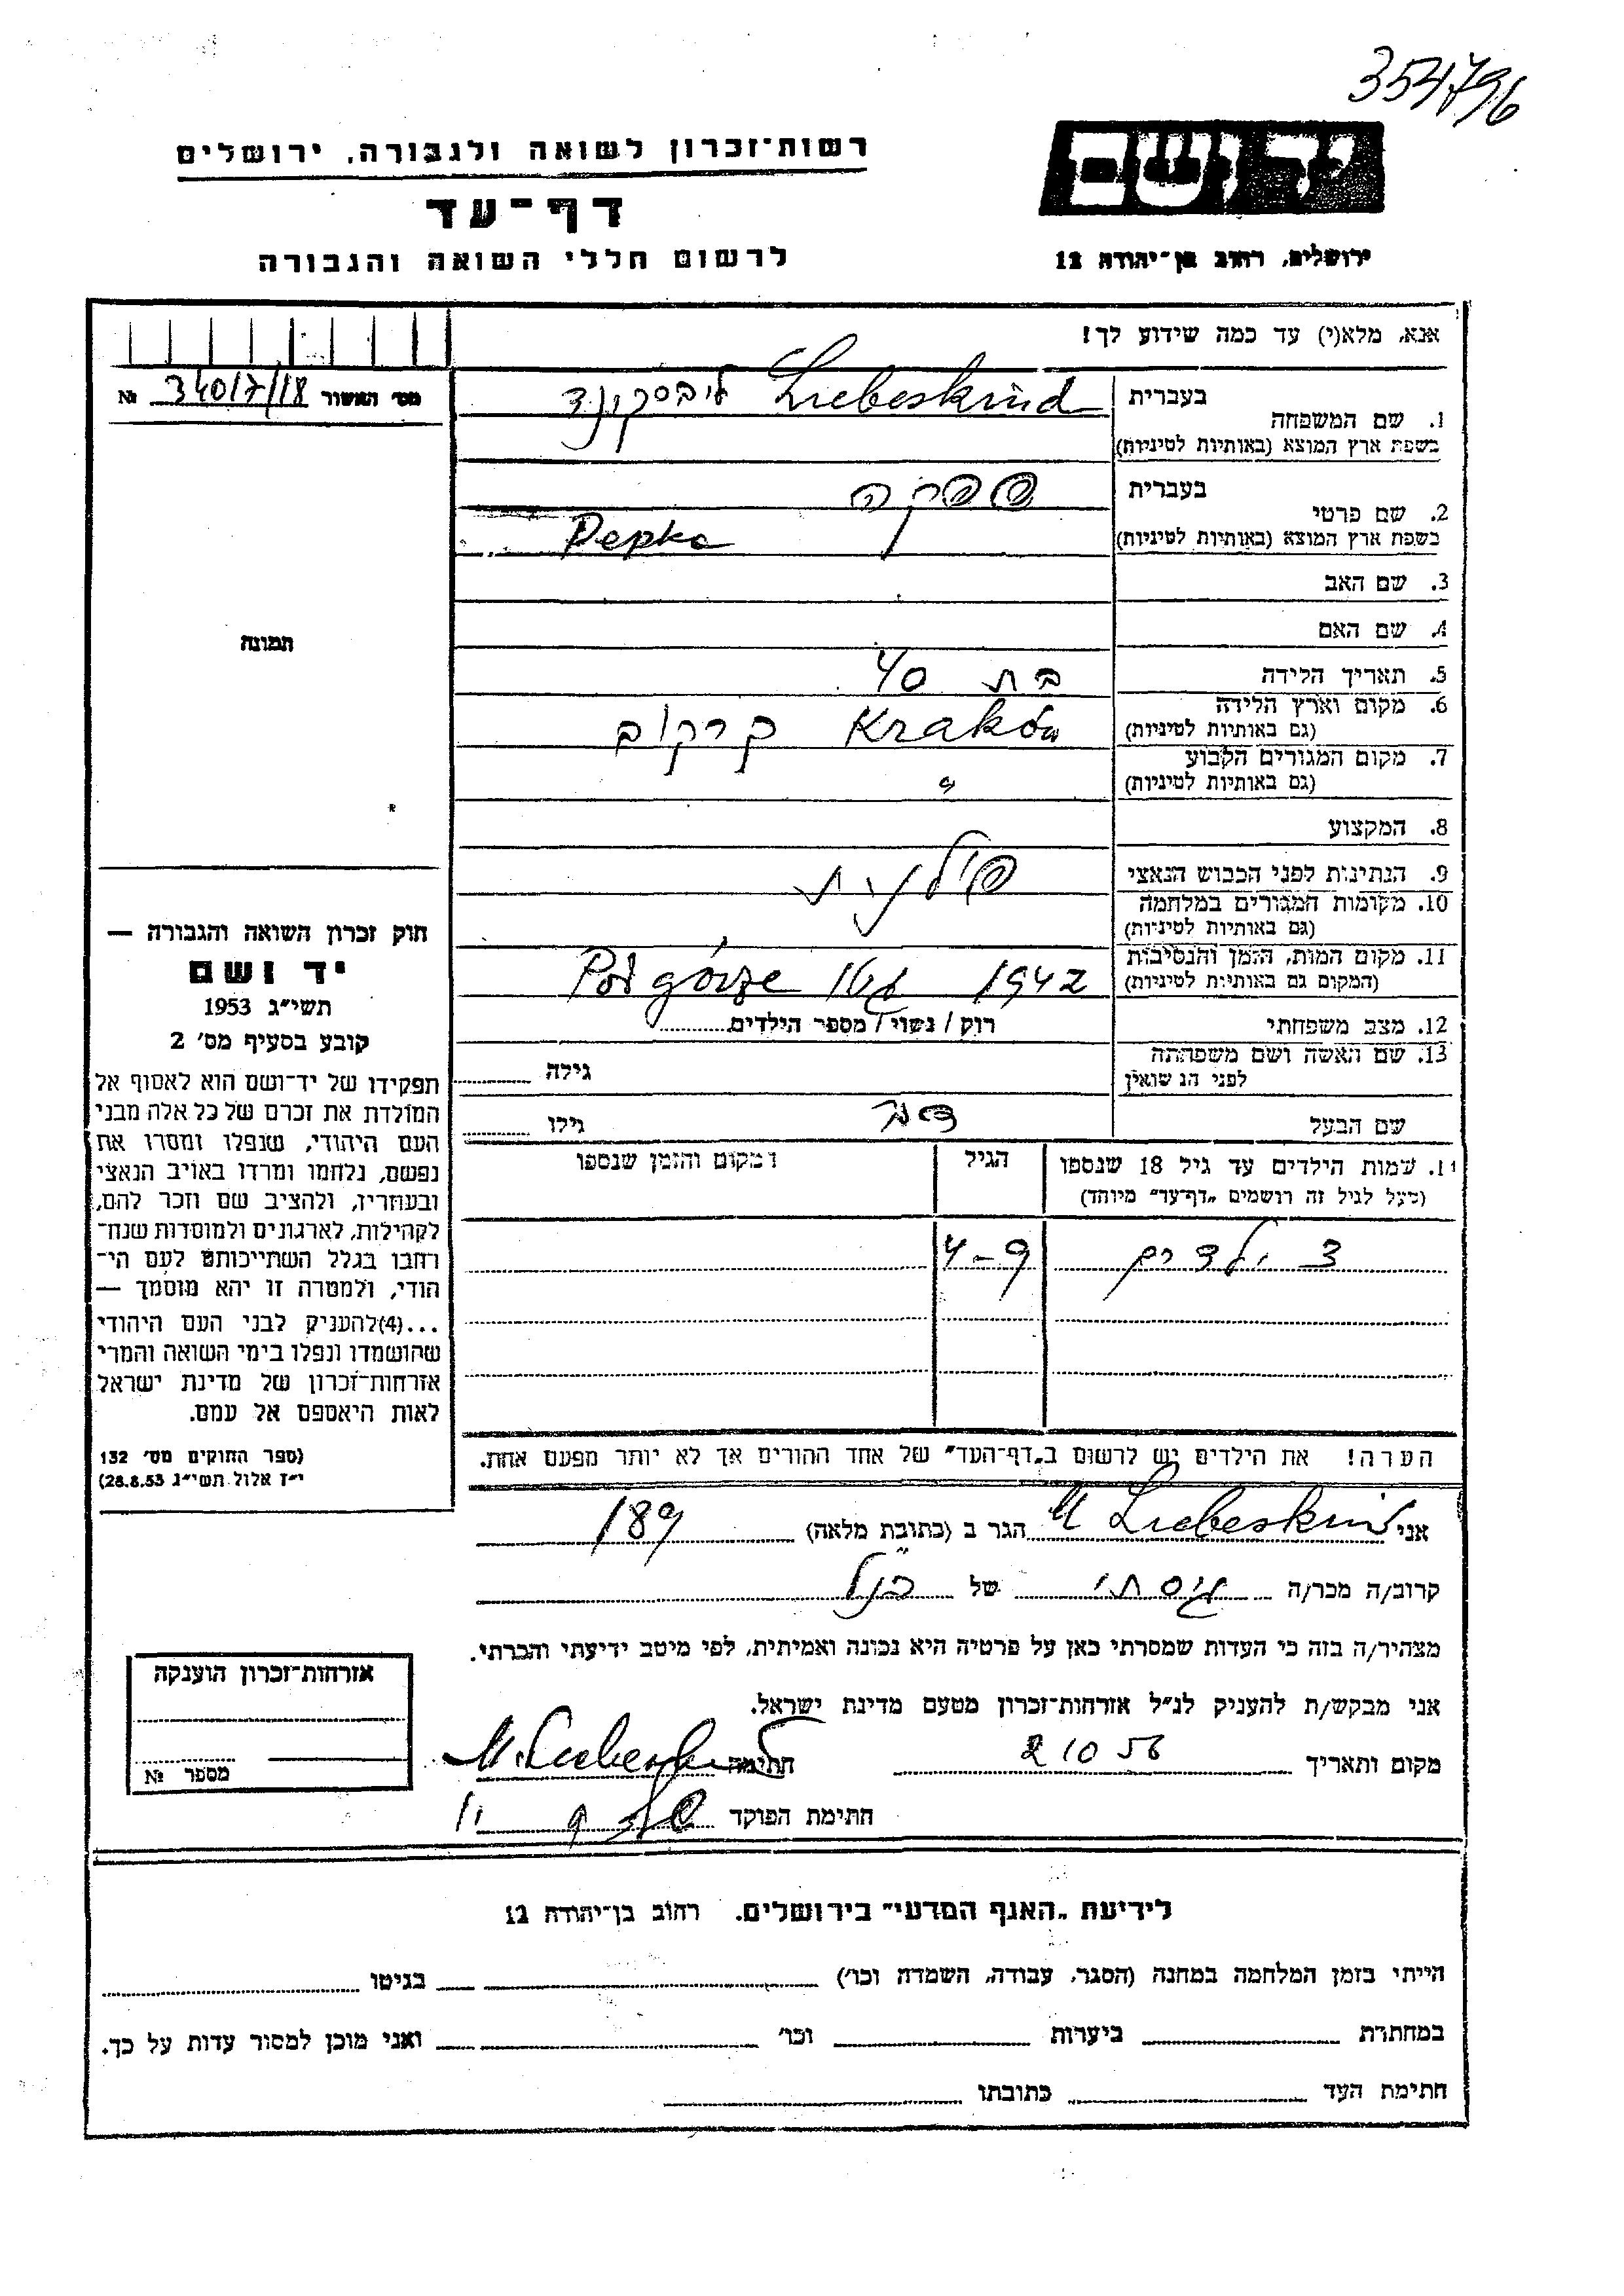 354796
יד ושם
רשות־זכרון לשואה ולגבורה, ירושלים
דף־עד
ירושלים, רחוב בן־יהודה 12
לרשום חללי השואה והגבורה
אנא, מלא(י) עד כמה שידוע לך!
מס׳ האשור 34017/18 №
תמונה
1. שם המשפחה
בעברית Liebeskind ליבסקינד
בשפת ארץ המוצא (באותיות לטיניות)
2. שם פרטי
בעברית פפקה
בשפת ארץ המוצא (באותיות לטיניות) Pepka
3. שם האב
4. שם האם
5. תאריך הלידה בת 40
6. מקום וארץ הלידה
(גם באותיות לטיניות) Kraków קרקוב
7. מקום המגורים הקבוע
(גם באותיות לטיניות) "
8. המקצוע
9. הנתינות לפני הכבוש הנאצי פולנית
10. מקומות המגורים במלחמה
(גם באותיות לטיניות)
11. מקום המות, הזמן והנסיבות
(המקום גם באותיות לטיניות) 1942 גטו Podgórze
12. מצב משפחתי רווק / נשוי / מספר הילדים
13. שם האשה ושם משפחתה
לפני הנשואין גילה
שם הבעל דב גילו
14. שמות הילדים עד גיל 18 שנספו
(מעל לגיל זה רושמים „דף־עד” מיוחד)
הגיל
המקום והזמן שנספו
3 ילדים 4-9
הערה! את הילדים יש לרשום ב„דף־העד” של אחד ההורים אך לא יותר מפעם אחת.
חוק זכרון השואה והגבורה —
יד ושם
תשי״ג 1953
קובע בסעיף מס׳ 2
תפקידו של יד־ושם הוא לאסוף אל
המולדת את זכרם של כל אלה מבני
העם היהודי, שנפלו ומסרו את
נפשם, נלחמו ומרדו באויב הנאצי
ובעוזריו, ולהציב שם וזכר להם,
לקהילות, לארגונים ולמוסדות שנח־
רחבו בגלל השתייכותם לעם הי־
הודי, ולמטרה זו יהא מוסמך —
...(4) להעניק לבני העם היהודי
שהושמדו ונפלו בימי השואה והמרי
אזרחות־זכרון של מדינת ישראל
לאות היאספם אל עמם.
(ספר החוקים מס׳ 132
י״ז אלול תשי״ג 28.8.53)
אני M Liebeskind הגר ב (כתובת מלאה) 189
קרוב/ה מכר/ה גיסתי של הנ״ל
מצהיר/ה בזה כי העדות שמסרתי כאן על פרטיה היא נכונה ואמיתית, לפי מיטב ידיעתי והכרתי.
אני מבקש/ת להעניק לנ״ל אזרחות־זכרון מטעם מדינת ישראל.
מקום ותאריך 2 10 56 חתימה M. Liebeskind
חתימת הפוקד
אזרחות־זכרון הוענקה
מספר №
לידיעת „האגף המדעי” בירושלים. רחוב בן־יהודה 12
הייתי בזמן המלחמה במחנה (הסגר, עבודה, השמדה וכו׳) בגיטו
במחתרת ביערות וכו׳ ואני מוכן למסור עדות על כך.
חתימת העד כתובתו